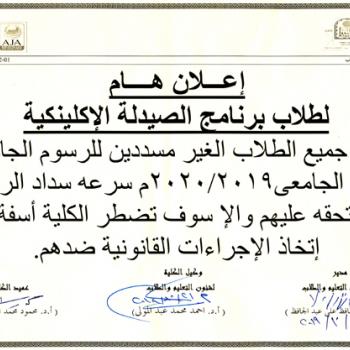 AJA
إعلان هام
لطلاب برنامج الصيدلة الإكلينكية
جميع الطلاب الغير مسددين للرسوم الجا
الجامعى ٢٠٢٠/٢٠١٩م سرعه سداد الر
تحقه عليهم والإ سوف تضطر الكلية أسفة
إتخاذ الإجراءات القانونية ضدهم.
مدير
وكيل الكلية
عميد الك
التعليم والطلاب
لشئون التعليم والطلاب
حافظ على عبد الحافظ )
( أ.د. احمد محمد عبد المولى )
( أ.د. محمود محمد